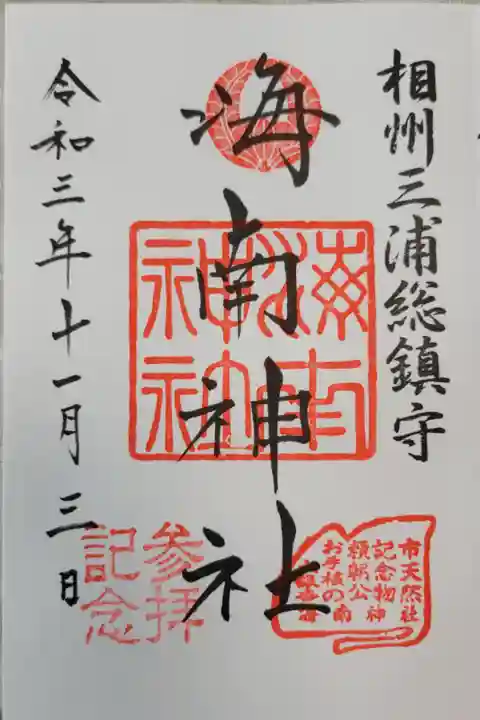 相州三浦総鎮守
海南神社
令和三年十一月三日
海南
神社
市天然
記念物
頼朝公
お手植の
海南神社
参拝
記念